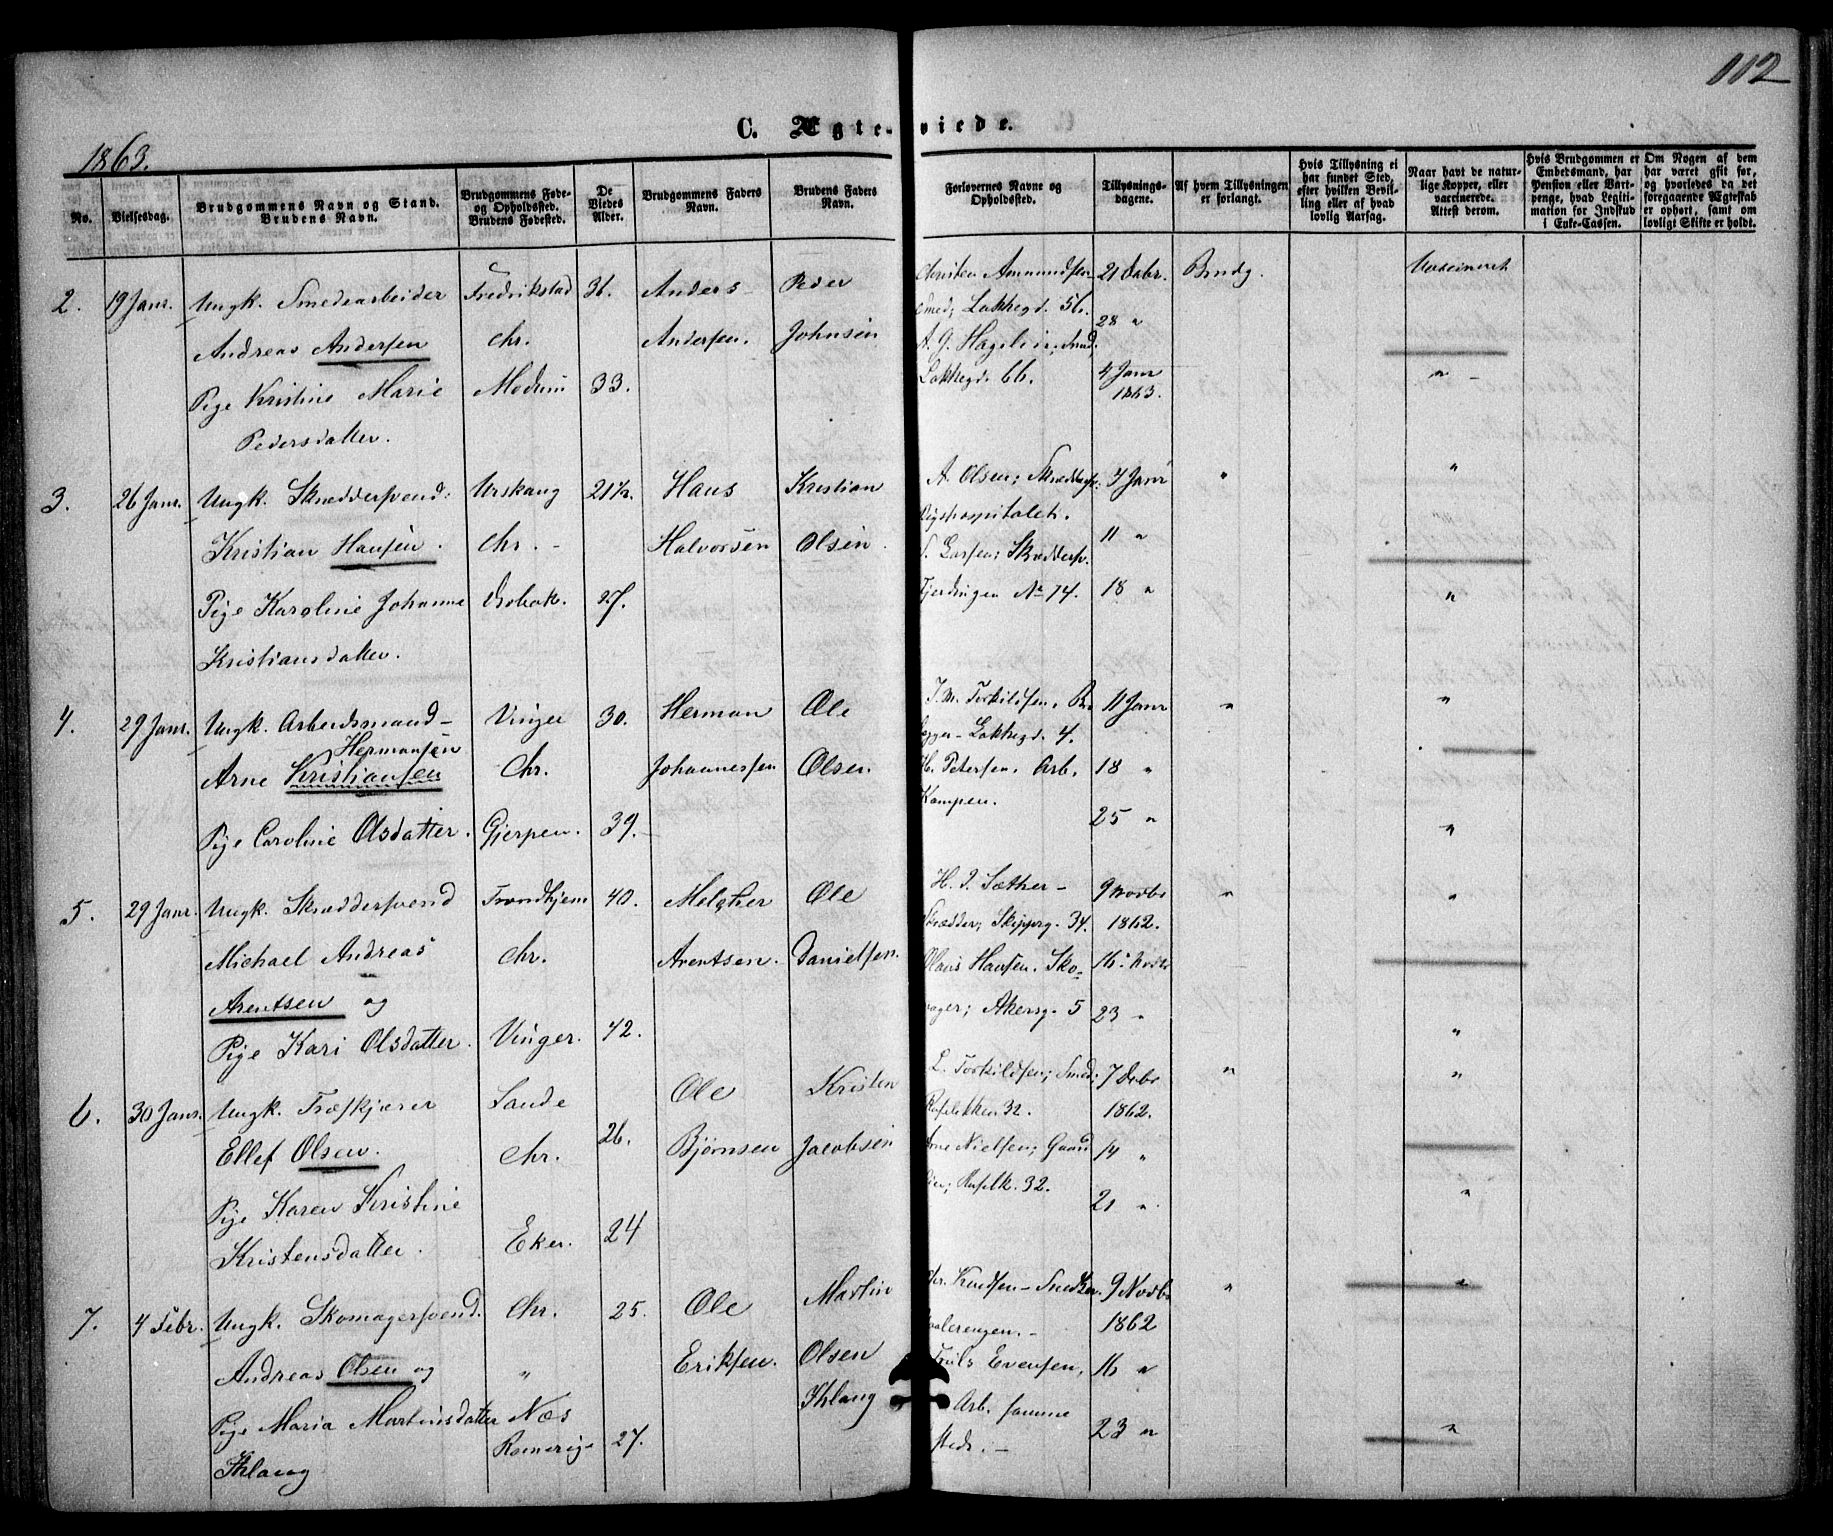 112
C. Ægte-viede.
1863.
No.
Vielsesdag.
Brudgommens Navn og Stand.
Brudens Navn.
Brudgommens Føde-
og Opholdssted.
Brudens Fødested.
De
Viedes
Alder.
Brudgommens Faders
Navn.
Brudens Faders
Navn.
Forlovernes Navne og
Opholdssted.
Tillysnings-
dagene.
Af hvem Tillysningen
er forlangt.
Hvis Tillysning ei
har fundet Sted,
efter hvilken Bevil-
ling eller af hvad
lovlig Aarsag.
Naar havt de natur-
lige Kopper, eller
vaccinerede.
Attest derom.
Hvis Brudgommen er
Embedsmand, har
Pension eller Vart-
penge, hvad Legiti-
mation for Indskud
i Enke-Cassen.
Om Nogen af dem
har været gift for,
og hvorledes da det
foregaaende Ægteskab
er ophørt, samt om
lovligt Skifte er holdt.
2. 19 Janr. Ungk. Smedearbeider Fredrikstad 36. Anders Peder Christen Ammundsen 21 Debr. Brudg. Vaccineret
Smed; Lakkegd. 56.
Andreas Andersen Chr. Andersen. Johnsen 28 "
A. G. Hagelin; Smed.
Pige Kristine Marie Modum 33. Lakkegd. 66. 4 Janr 1863. "
Pedersdatter.
3. 26 Janr. Ungk. Skræddersvend: Urskoug 21½. Hans Kristian A. Olsen; Skrædder 4 Janr " "
Rigshospitalet.
Kristian Hansen. Chr. Halvorsen Olsen. 11 "
S. Larsen; Skræddersv.
Pige Karoline Johanne Drobak. 27. Fjerdingen No 74. 18 " "
Kristiansdatter.
4. 29 Janr. Ungk. Arbeidsmand Vinger 30. Herman Ole J. M. Torkildsen. 11 Janr " "
Hermansen Lakkegd. 4.
Arne Kristiansen Chr. Johannessen Olsen. Petersen. Arb. 18 "
Kampen.
Pige Caroline Olsdatter. Gjerpen. 39. 25 " "
5. 29 Janr. Ungk. Skræddersvend Trondhjem 40. Melcher Ole H. P. Sæther 9 Novbr " "
Skrædder; Skipperg. 34. 1862.
Michael Andreas Chr. Arentsen. Danielsen. Olaus Hansen. Sko- 16 Novbr
Arentsen og mager; Akersg. 5 23 "
Pige Kari Olsdatter. Vinger. 42. "
6. 30 Janr. Ungk. Træskjærer Sande 26. Ole Kristen L. Torkildsen; Smed; 7 Debr " "
Røfslkken 32. 1862.
Ellef Olsen. Chr. Bjørnsen Jacobsen Arne Nielsen; Gaard 14 "
Røfslk. 32.
Pige Karen Kristine Eker. 24 21 " "
Kristensdatter.
7. 4 Febr. Ungk. Skomagersvend. Chr. 25. Ole Martin Chr. Knudsen Snedker. 9 Novbr " "
Vaalerengen. 1862
Andreas Olsen og " Eriksen. Olsen Truls Evensen, 16 "
Ihlang Arb. samme
Pige Maria Martinsdatter Næs 27. sted. 23 " "
Ihlang Romerige